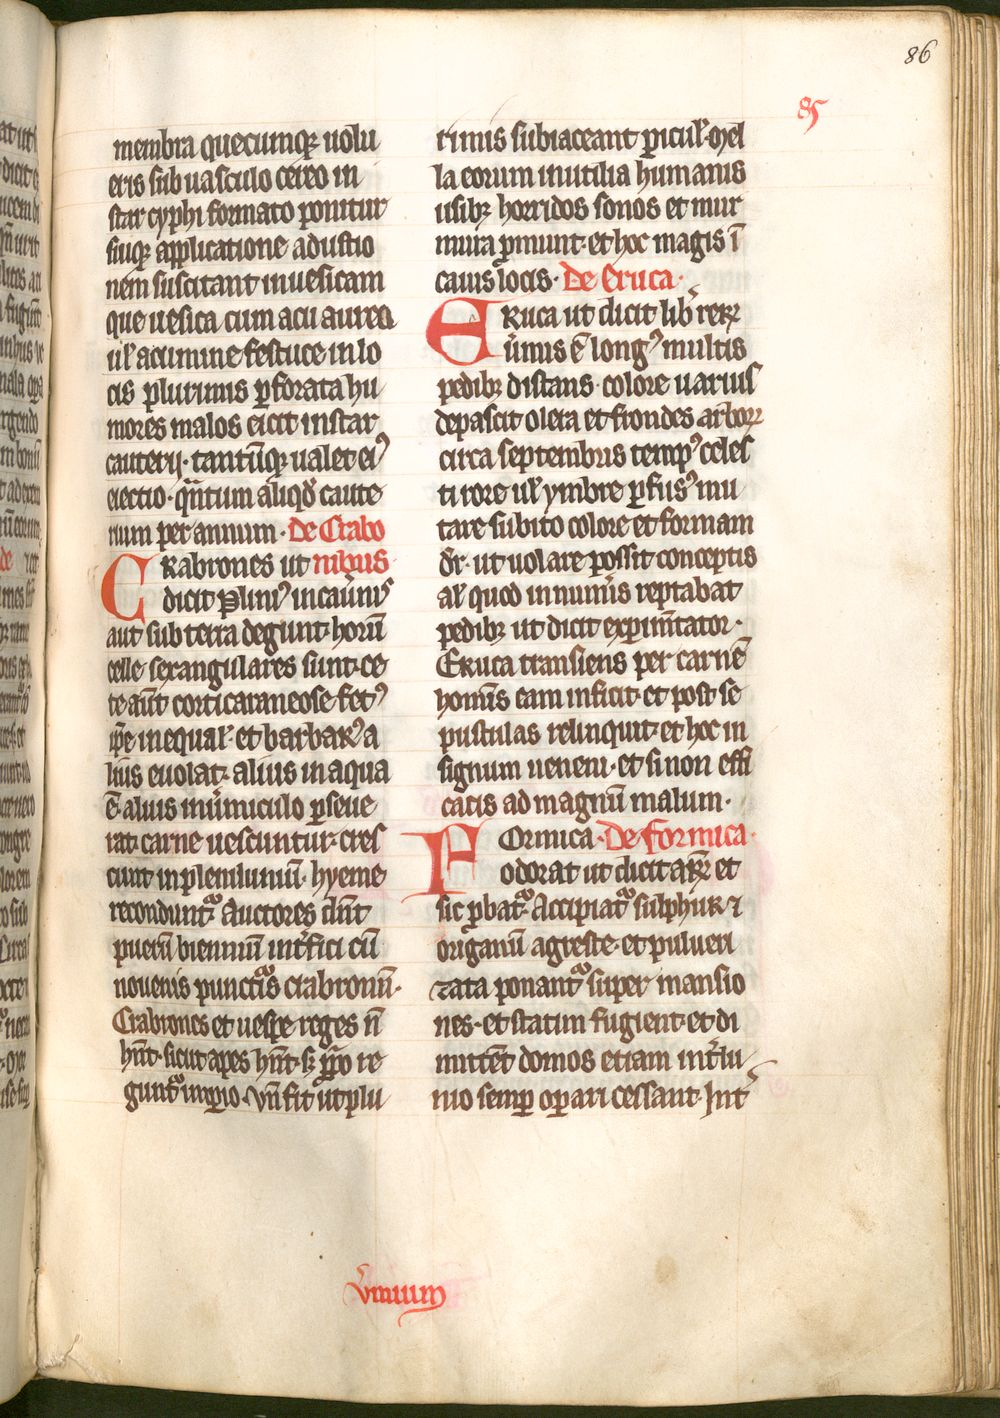 86
85
membra quecumqꝫ uolu
eris sub uasculo cereo in
star cyphi formato ponitur
siuqꝫ applicatione adustio
nem suscitant in uesicam
que uesica cum acu aurea
ul̕ acumine festuce in lo
cis plurimis ꝑforata hu
mores malos eicit instar
cauterij· tantūqꝫ ualet eiꝰ
eiectio· q̄ntum aliqd̕ caute
rium per annum· De Crabo
Crabrones ut nibus
dicit Pliniꝰ in cau̕nis
aut sub terra degunt· horū
celle sexangulares sunt· ce
te aūt corticaraneose· fetꝰ
ip̄e inequal̕· et barbarꝰ a
lius euolat· alius in aqua
ē· alius in u̕miculo ꝑseue
rat· carne uescuntur· cres
cunt in plenilunium̄· hyeme
reconduntᷣ Auctores dn̄t
puerū biennium̄ int̕fici cū
nouenis punctis crabronū·
Crabrones et uespe reges n̄
hn̄t· sicut apes hn̄t· sꝫ ꝓpͦ re
guntᷣ imꝑio· Vn̄ fit ut plu
rimis subiaceant ꝑicul̕· Mel
la eorum inutilia humanis
usibꝫ horridos sonos et mur
mura ꝓmunt· et hoc magis ī
cauis locis· De Eruca·
Eruca ut dicit lib̕ reꝝ
u̕mis ē longꝰ multis
pedibꝫ distans· colore uarius
depascit oleta et frondes arboꝝ
circa septembris tempꝰ celes
ti rore ul̕ ymbre ꝑfusꝰ mu
tare subito colore et formam
dr̄· ut uolare possit conceptis
al̕ quod in nimis reptabat
pedibꝫ ut dicit exꝑim̄tator·
Eruca transiens per carnē
hominis eam inficit· et post se
pustulas relinquit· et hoc in
signum ueneni· et si non effi
catis ad magnū malum·
Formica· De formica·
odorat ut dicit ar̄· et
sic ꝓbatᷣ· Accipiatᷣ sulphur ⁊
origanū agreste· et pulueri
zata ponantᷣ super mansio
nes· et statim fugient· et di
mittēt domos etiam int̕lu
nio semꝑ oꝑari cessant· Int̕
V̕mium